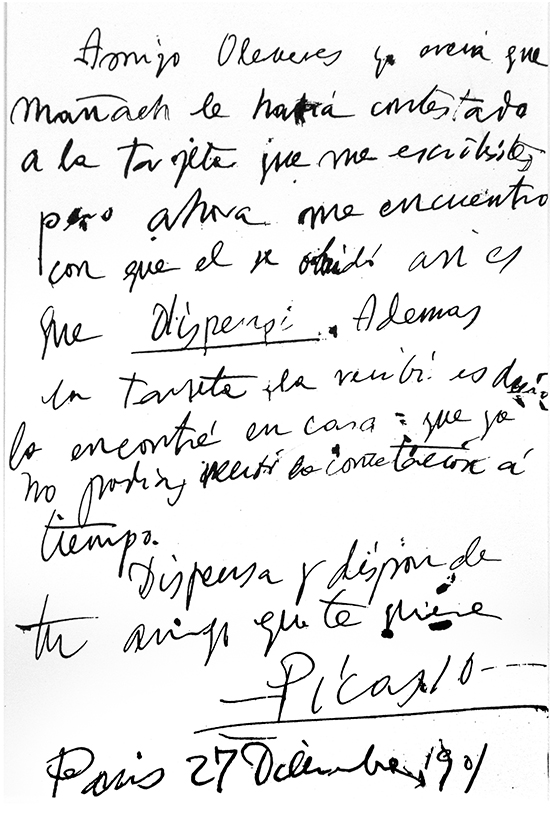 Amigo Oleveres yo creia que
Mañach le habia contestado
a la tarjeta que me escribistes
pero ahora me encuentro
con que el se olvidó asi es
que Dispensi. Ademas
la tarjeta la recibí es decir
la encontré en casa = que ya
no podias recibir la contetación á
tiempo.
Dispensa y dispon de
tu amigo que te quiere
—Picasso—
Paris 27 Diciembre 1901